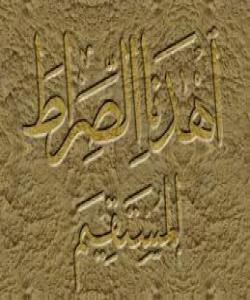 أهدنا الصراط
المستقيم